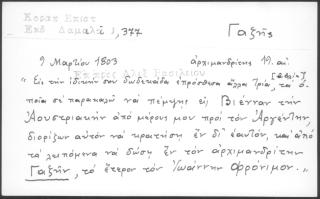 Κοραη Επιστ
Εκδ Δαμαλᾶ 1, 377
Γαζῆς
9 Μαρτίου 1803 ἀρχιμανδρίτης 19. αἰ.
" Εἰς τὴν ἰδικήν σου δωδεκάδα ἐπρόσθεσα ἄλλα τρία, τὰ ὁ-
ποῖα σὲ παρακαλῶ νὰ πέμψῃς εἰς Βιένναν τὴν
Ἀουστριακὴν ἀπὸ μέρους μου πρὸς τὸν Ἀργέντην,
διορίζων αὐτὸν νὰ κρατήσῃ ἓν δι' ἑαυτόν, καὶ ἀπὸ
τὰ λειπόμενα νὰ δώσῃ ἓν τὸν ἀρχιμανδρίτην
Γαζῆν, τὸ ἕτερον τὸν Ἰωάννην Φρόνιμον. „